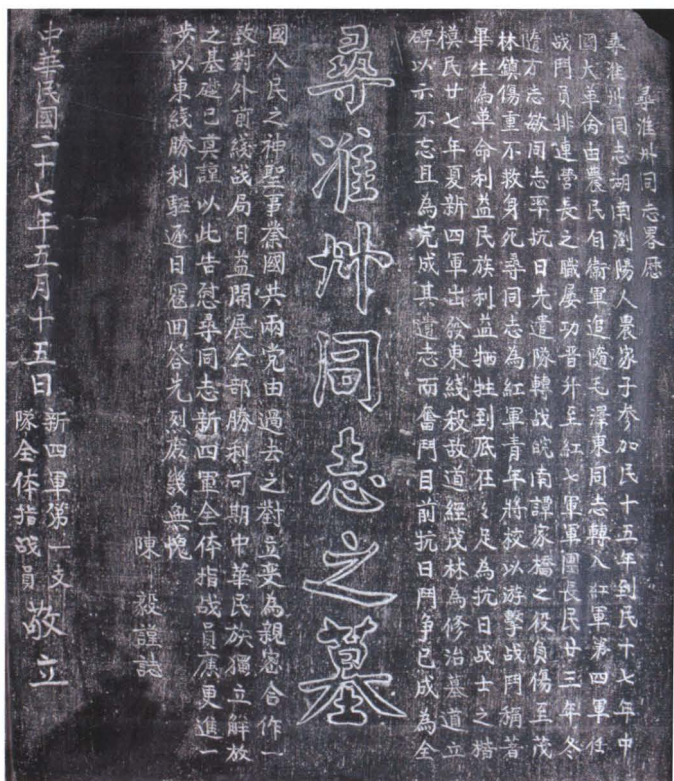 尋淮州同志畧歷
尋淮州同志湖南瀏陽人農家子参加民十五年到民十七年中
國大革命由農民自衞軍追隨毛澤東同志轉入紅軍第四軍任
战鬥員排連營長之職屡功晋升至紅七軍軍團長民廿三年冬
隨方志敏同志率抗日先遣隊轉战皖南譚家橋之役負傷至茂
林鎮傷重不救身死尋同志為紅軍青年將校以游擊战鬥稱著
畢生為革命利益民族利益牺牲到底在々足為抗日战士之楷
模民廿七年夏新四軍出發東綫殺敌道經茂林為修治墓道立
碑以示不忘且為完成其遺志而奮鬥目前抗日鬥争已成為全
尋淮州同志之墓
國人民之神聖事業國共兩党由過去之對立变為親密合作一
致對外前綫战局日益開展全部勝利可期中華民族獨立解放
之基礎已奠謹以此告慰尋同志新四軍全体指战員應更進一
步以東綫勝利驅逐日寇回答先烈庶幾無愧
陳毅謹誌
中華民國二十七年五月十五日
新四軍第一支
隊全体指战員
敬立